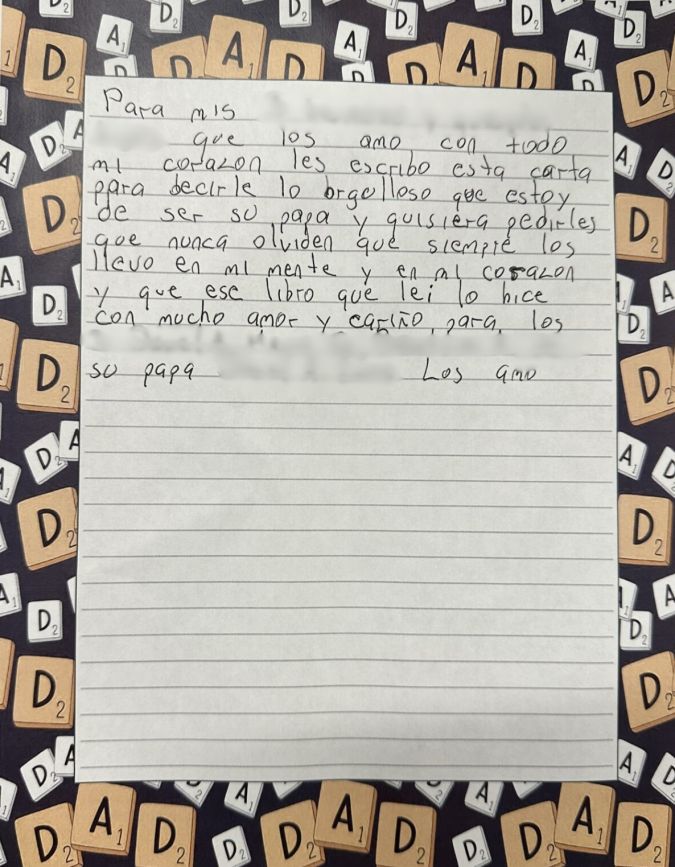 Para mis
que los amo con todo
mi corazon les escribo esta carta
para decirle lo orgolloso que estoy
de ser su papa y quisiera pedirles
que nunca olviden que siempre los
llevo en mi mente y en mi corazon
y que ese libro que lei lo hice
con mucho amor y cariño para los
su papa Los amo